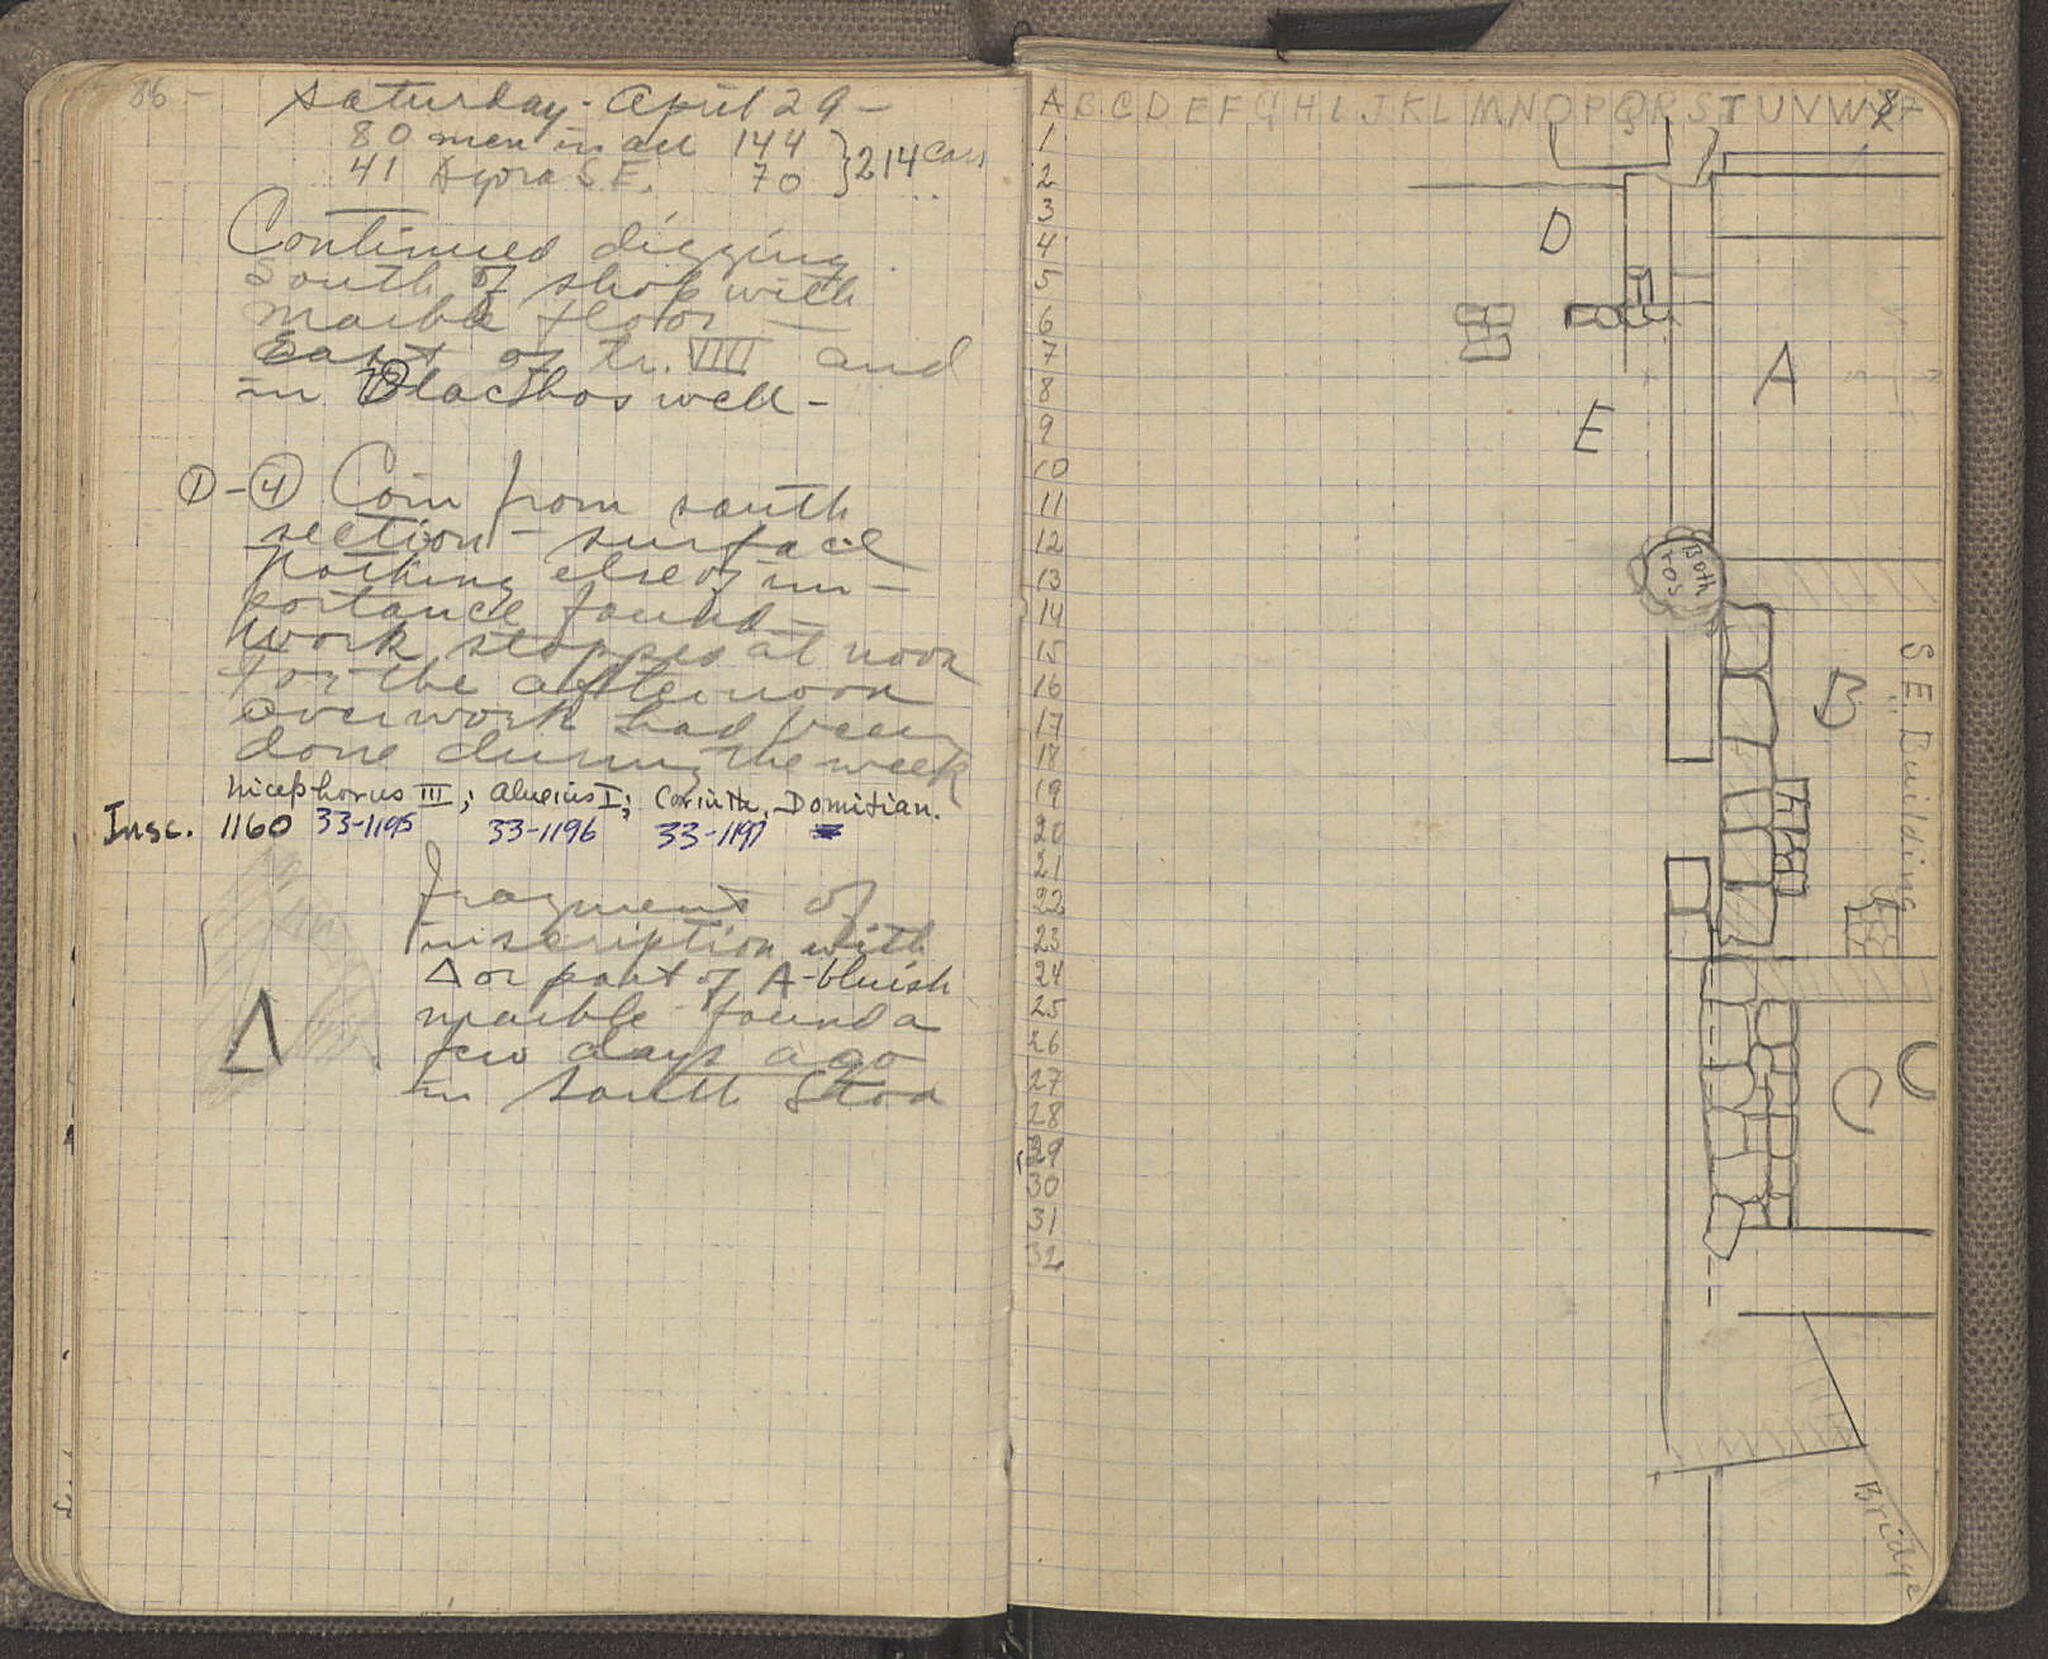 86 -
Saturday - April 29 -
80 men in all 144 } 214 cars
41 Agora S E. 70
Continued digging
South of shop with
marble floor -
East of tr. VIII and
in Blachos well -
① - ④ Coin from south
section - surface
Nothing else of im -
portance found -
Work stopped at noon
for the afternoon
overwork had been
done during the week
Nicephorus III; Alexius I; Corinth, Domitian.
Insc. 1160 33-1195 33-1196 33-1197
fragment of
inscription with
Δ or part of A - bluish
marble found a
few days ago
in South Stoa
Δ
A B C D E F G H I J K L M N O P Q R S T U V W X
87
1
2
3
4
5
6
7
8
9
10
11
12
13
14
15
16
17
18
19
20
21
22
23
24
25
26
27
28
29
30
31
32
D
A
E
Both
ros
B
S.E. Building
C
Bridge